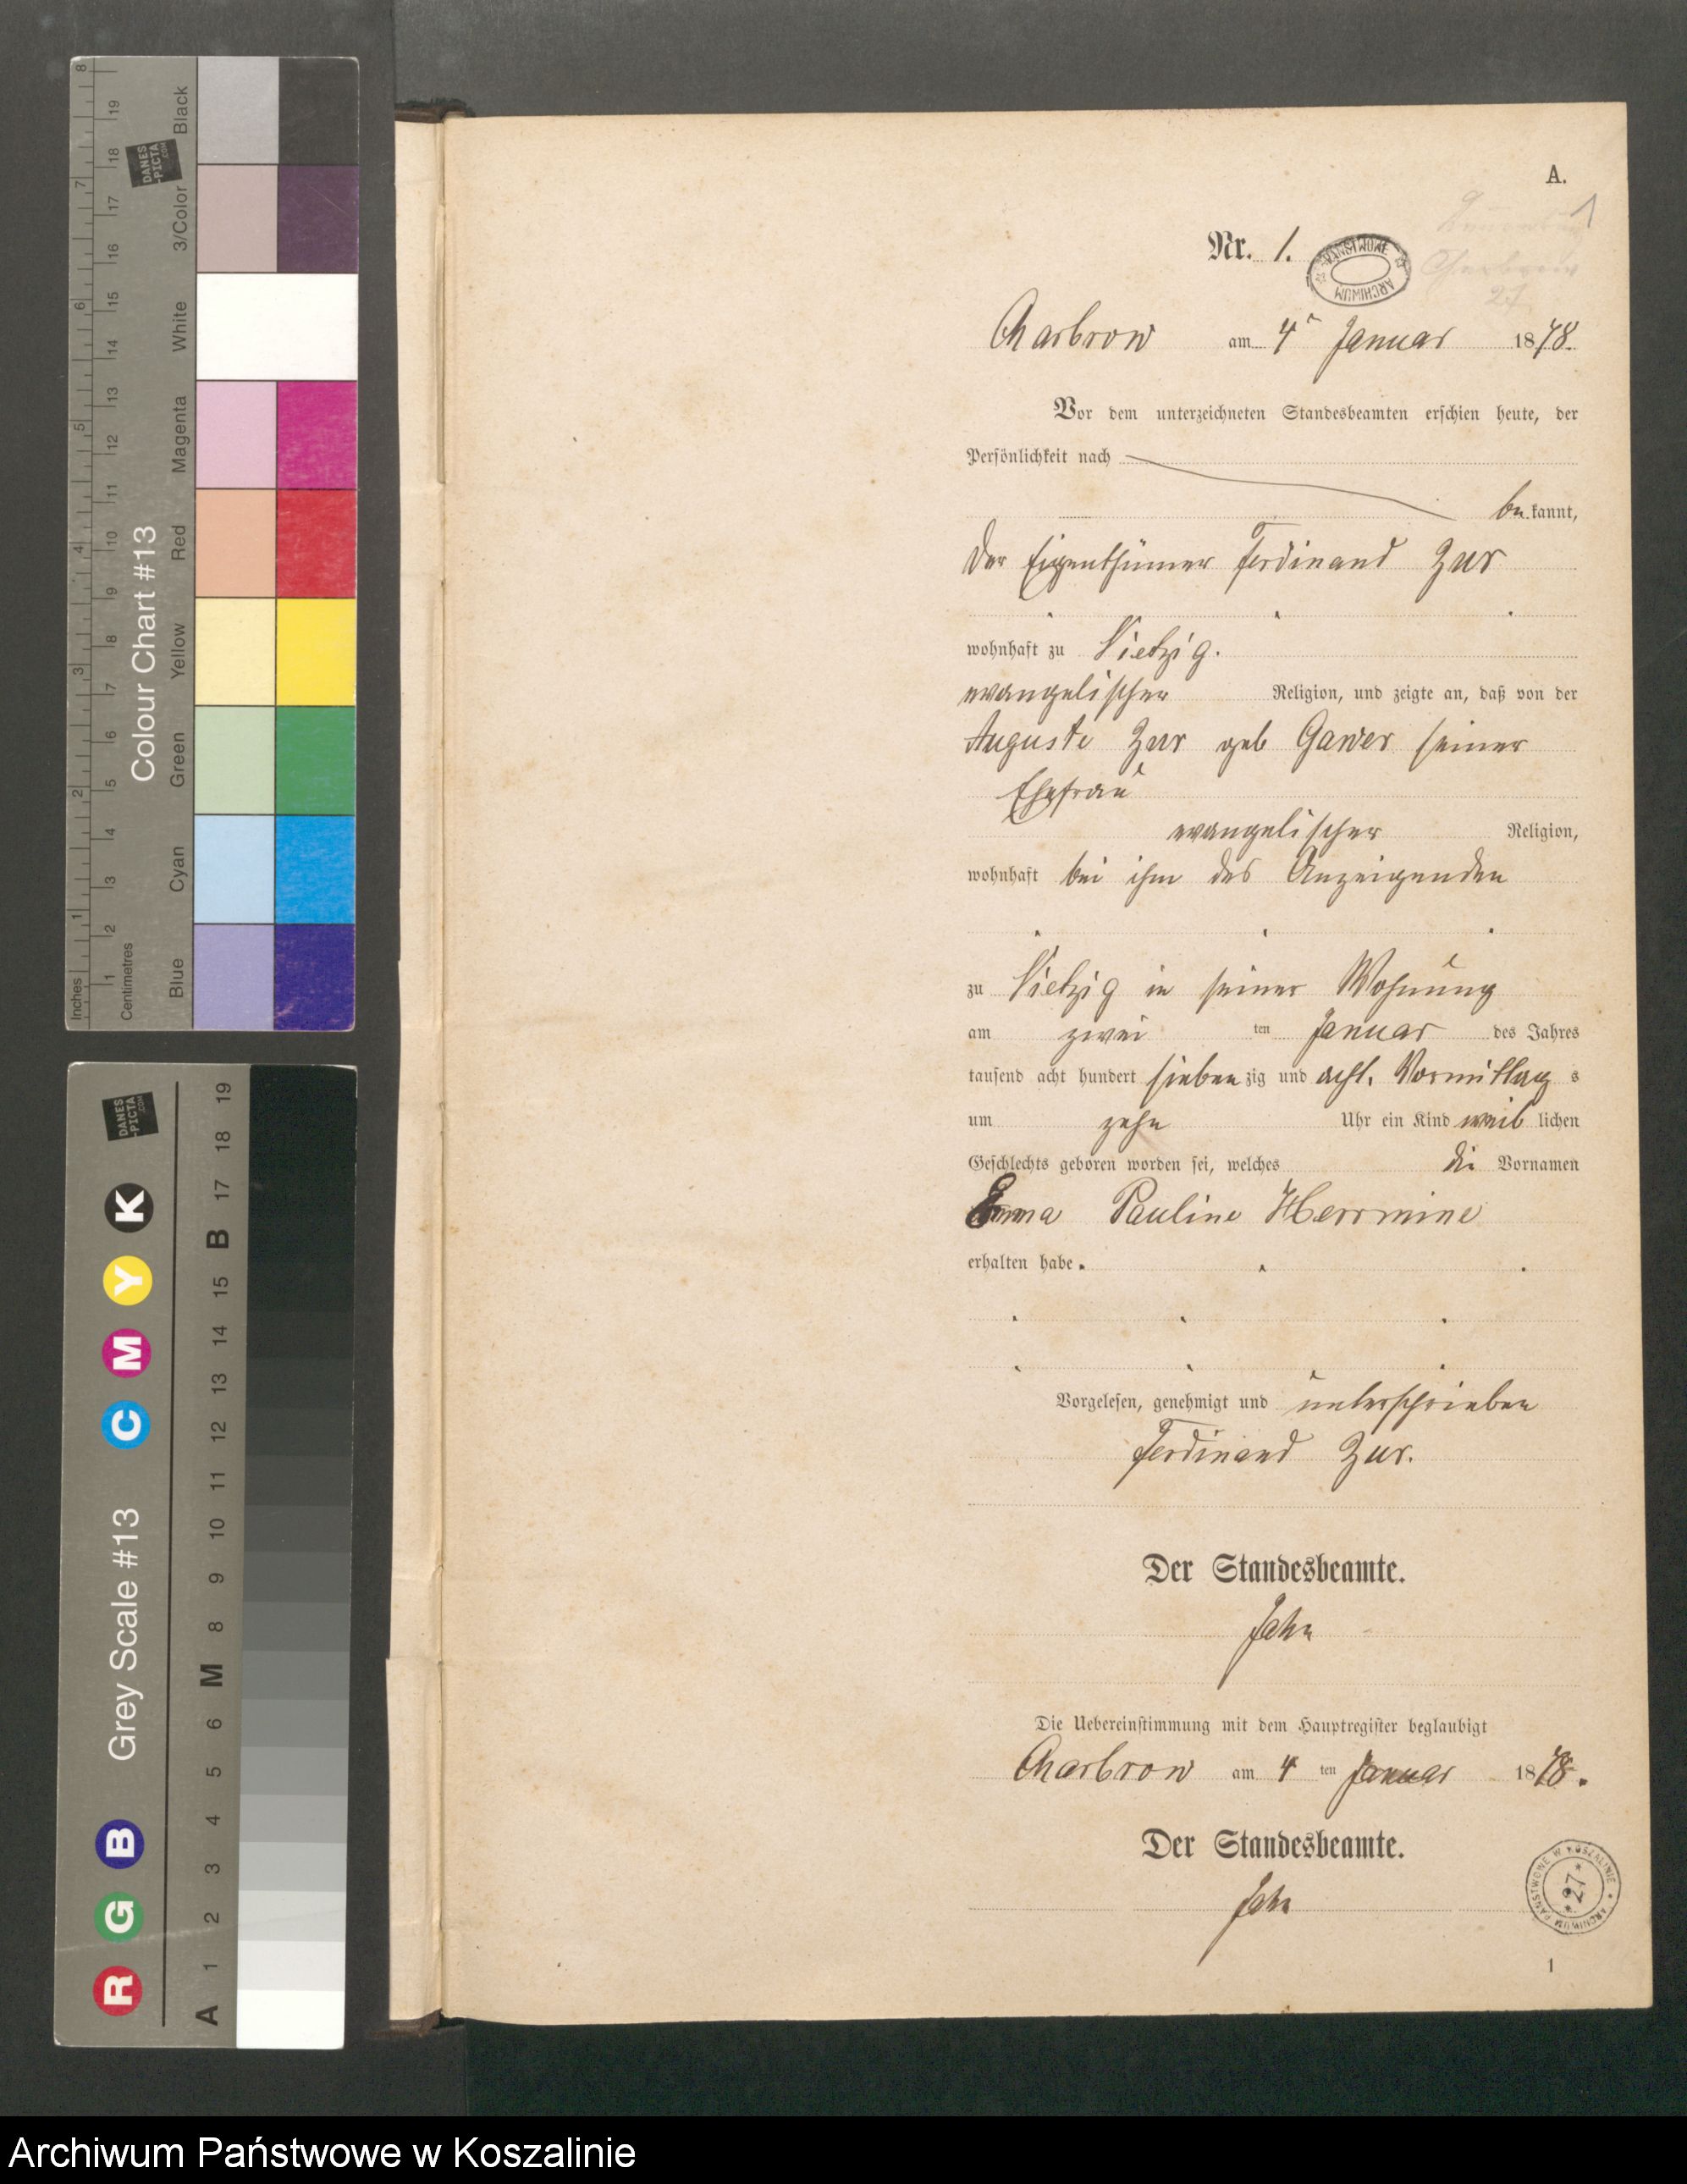 A.
1
Nr. 1.
ARCHIWUM PAŃSTWOWE
Charbrow am 4 Januar 1878.
Vor dem unterzeichneten Standesbeamten erschien heute, der
Persönlichkeit nach
bekannt,
der Eigenthümer Ferdinand Zur
wohnhaft zu Vietzig.
evangelischer Religion, und zeigte an, daß von der
Auguste Zur geb Gawer seiner
Ehefrau
evangelischer Religion,
wohnhaft bei ihm des Anzeigenden
zu Vietzig in seiner Wohnung
am zwei ten Januar des Jahres
tausend acht hundert siebenzig und acht. Vormittags
um zehn Uhr ein Kind weiblichen
Geschlechts geboren worden sei, welches die Vornamen
Emma Pauline Herrmine
erhalten habe.
Vorgelesen, genehmigt und unterschrieben
Ferdinand Zur.
Der Standesbeamte.
Jahn
Die Uebereinstimmung mit dem Hauptregister beglaubigt
Charbrow am 4 ten Januar 1878.
Der Standesbeamte.
Jahn
ARCHIWUM PAŃSTWOWE W KOSZALINIE
*27*
1
Colour Chart #13
DANES
-PICTA
.COM
Inches 1 2 3 4 5 6 7 8
Centimetres 1 2 3 4 5 6 7 8 9 10 11 12 13 14 15 16 17 18 19
Blue Cyan Green Yellow Red Magenta White 3/Color Black
Grey Scale #13
DANES
-PICTA
.COM
R G B C M Y K
A 1 2 3 4 5 6 M 8 9 10 11 12 13 14 15 B 17 18 19
Archiwum Państwowe w Koszalinie